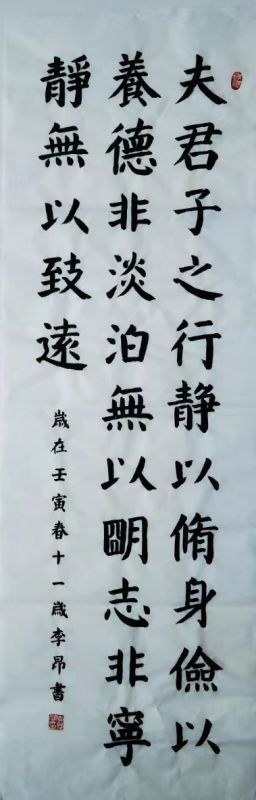 夫君子之行静以脩身儉以
養德非淡泊無以明志非寧
靜無以致遠
歲在壬寅春十一歲李昂書